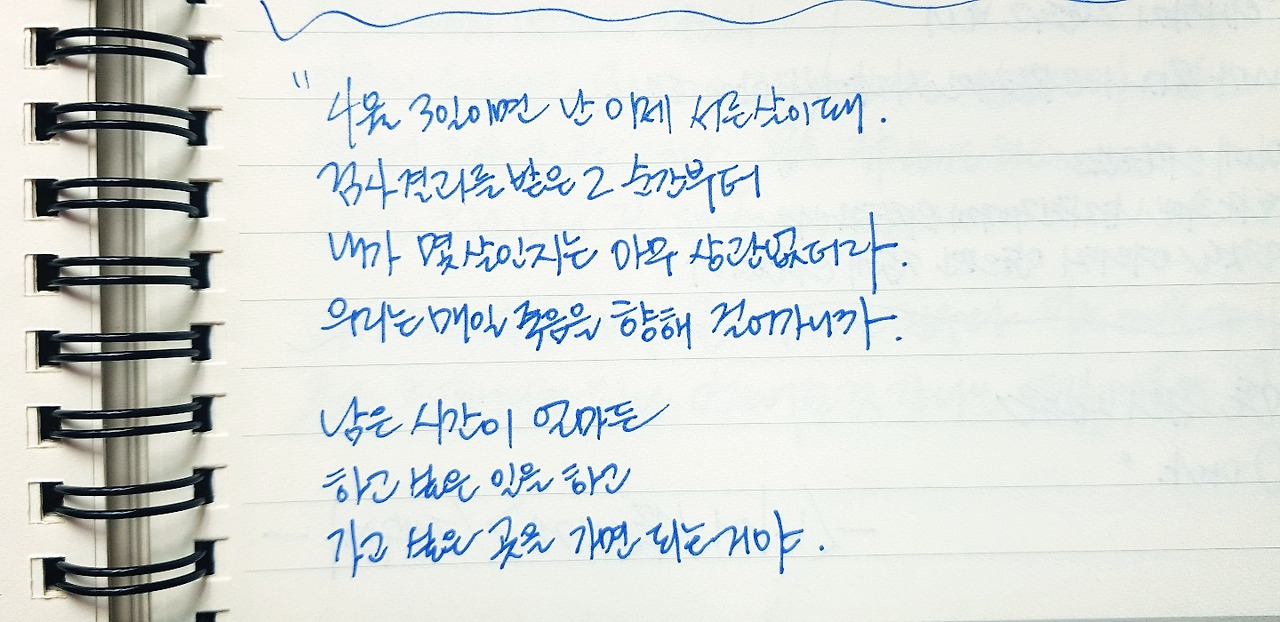 " 4월 3일이면 난 이제 서른살이 돼.
검사결과를 받은 그 순간부터
내가 몇살인지는 아무 상관없더라.
우리는 매일 죽음을 향해 걸어가니까.
남은 시간이 얼마든
하고 싶은 일을 하고
가고 싶은 곳을 가면 되는거야.